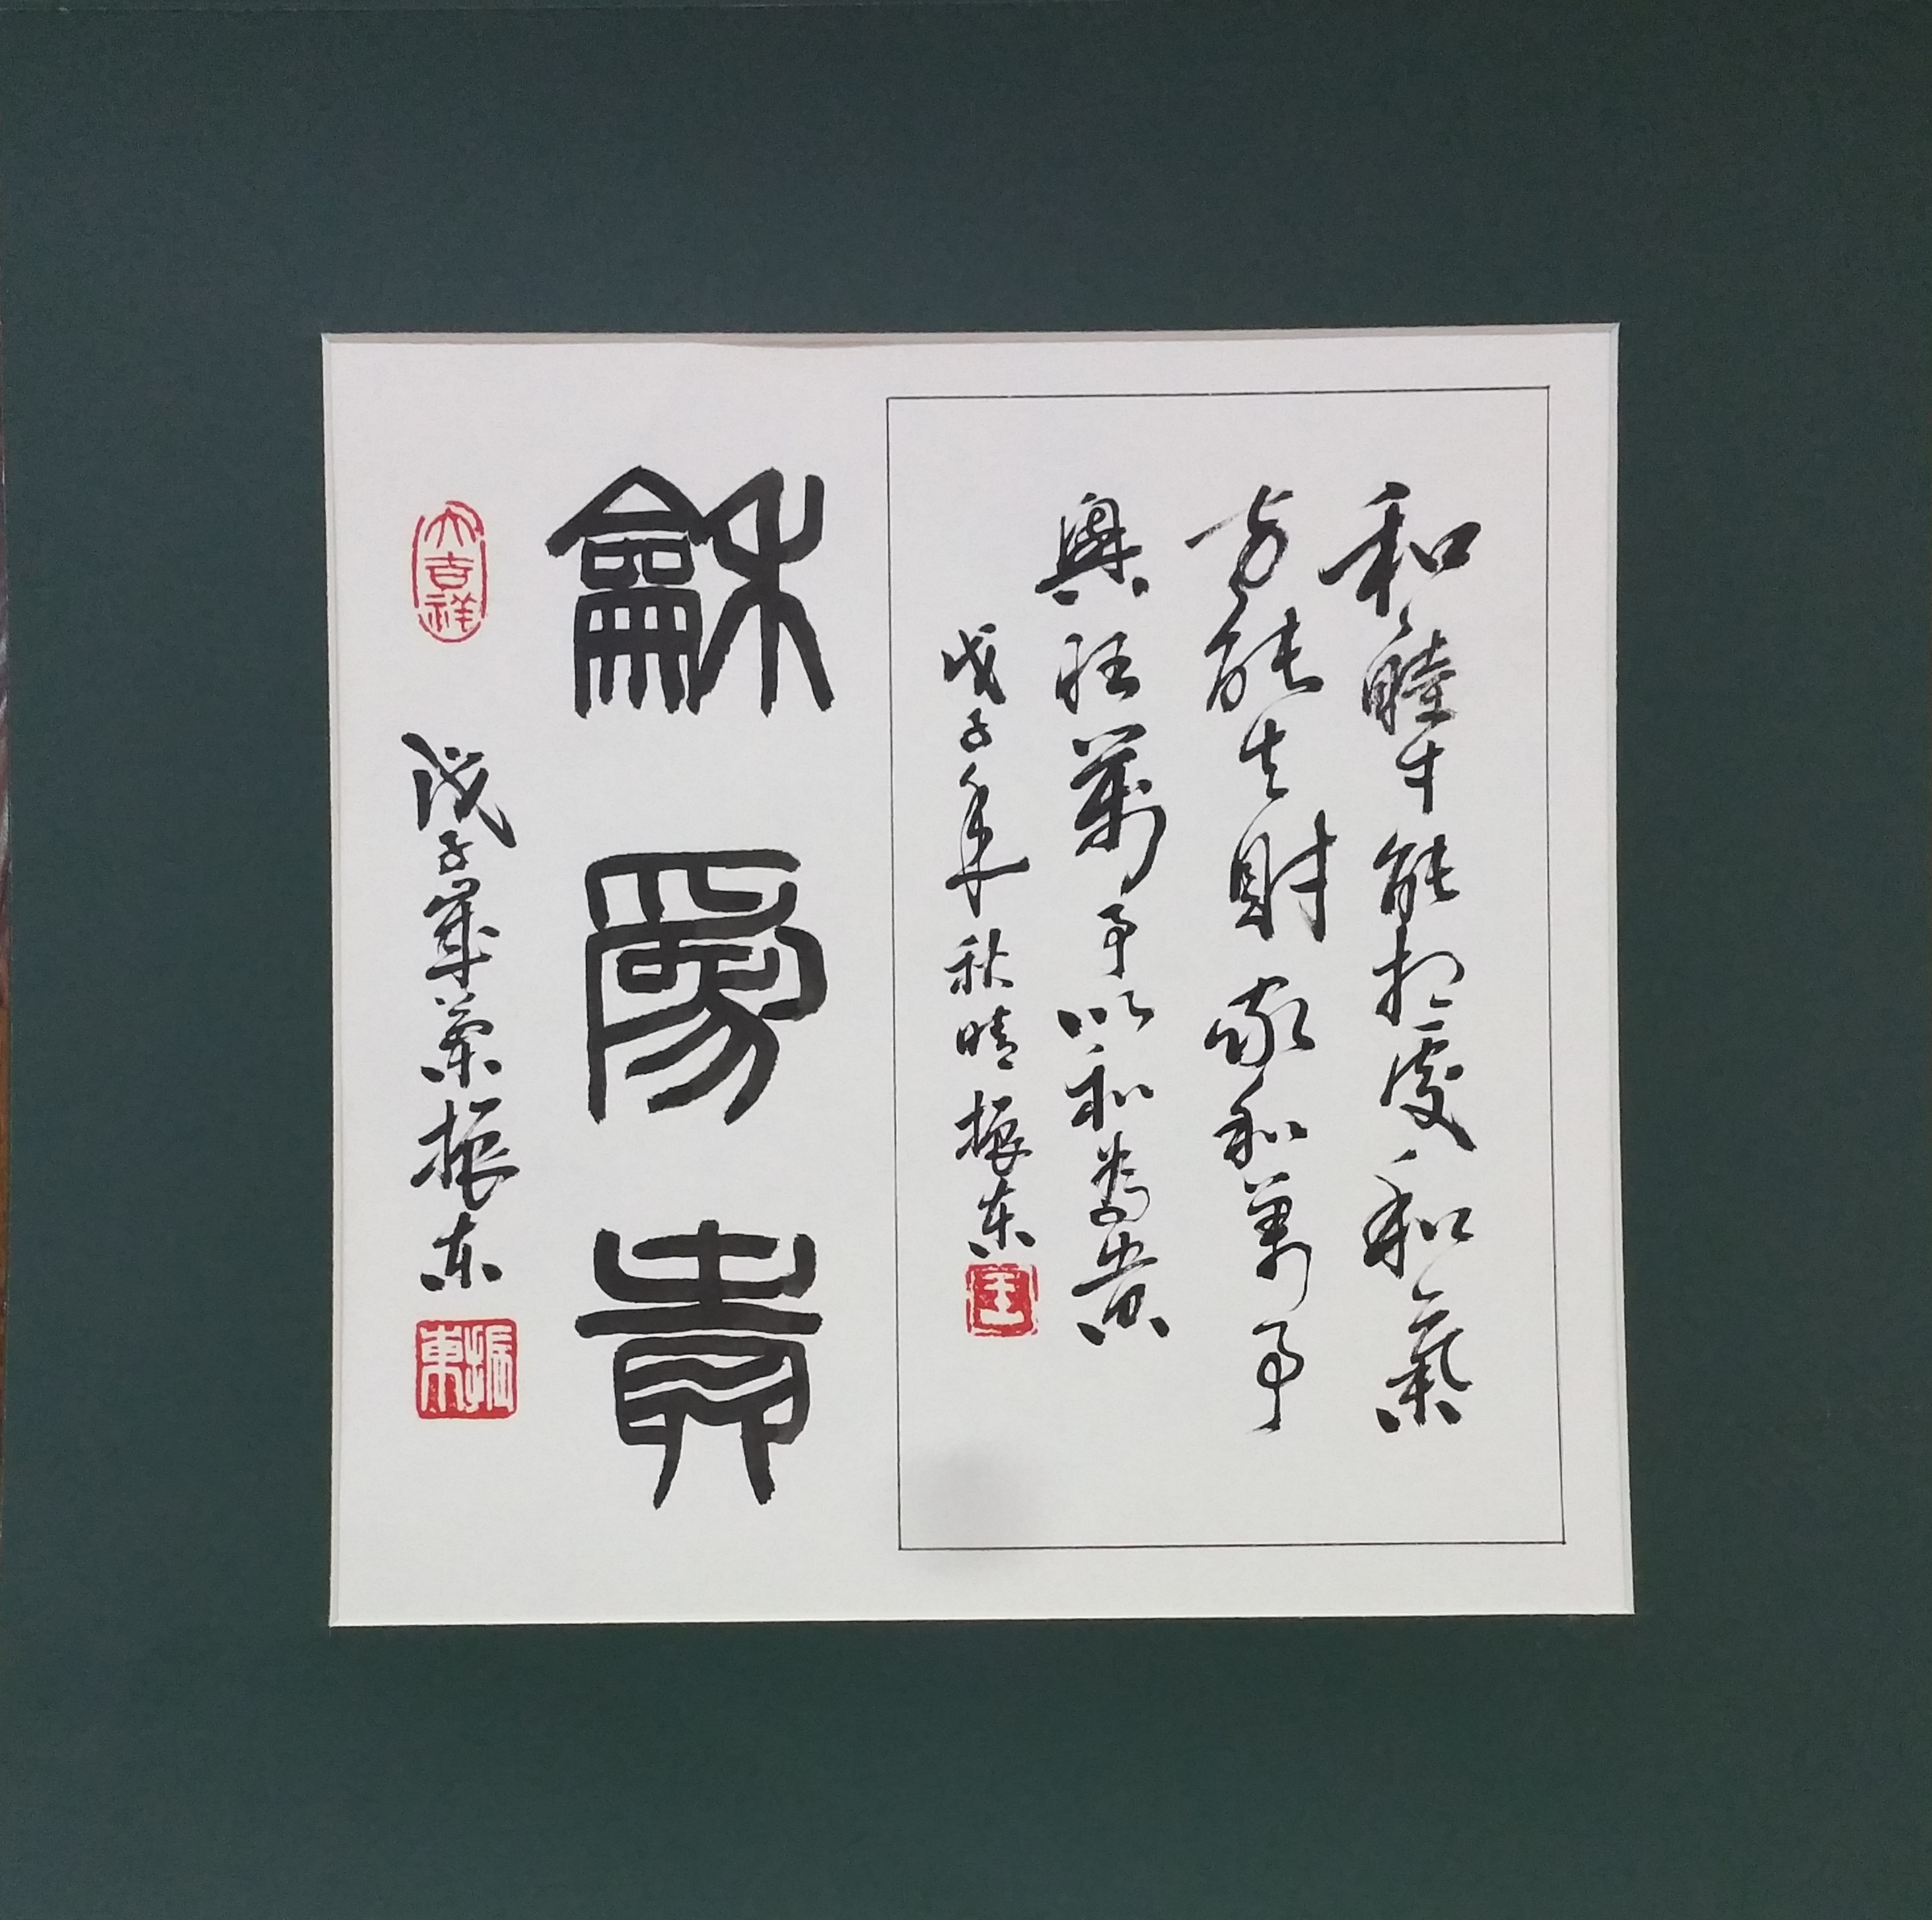 和睦才能相處和氣
方能生財家和萬事
興旺萬事以和為貴
戊子年秋晴振东
龢為貴
大吉祥
戊子年菊振东
振東